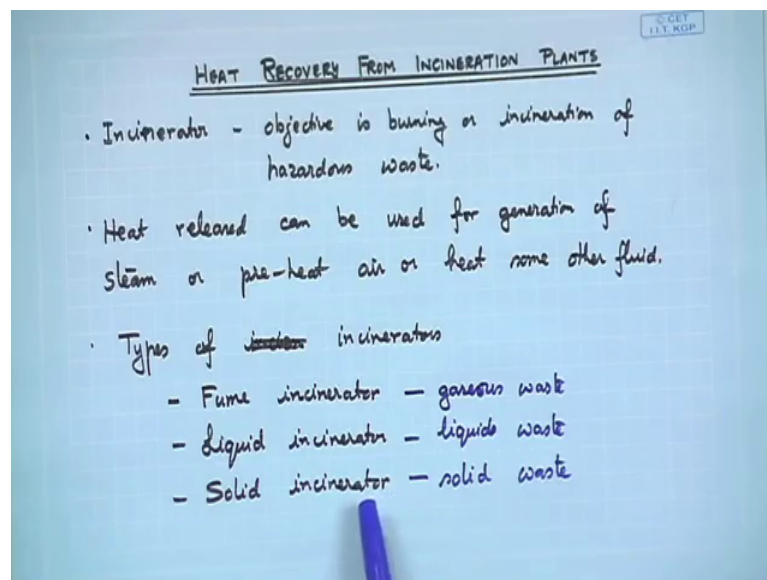 © CET
I.I.T. KGP
HEAT RECOVERY FROM INCINERATION PLANTS
· Incinerator - objective is burning or incineration of
hazardous waste.
· Heat released can be used for generation of
steam or pre-heat air or heat some other fluid.
· Types of incinerators
- Fume incinerator - gaseous waste
- Liquid incinerator - liquids waste
- Solid incinerator - solid waste